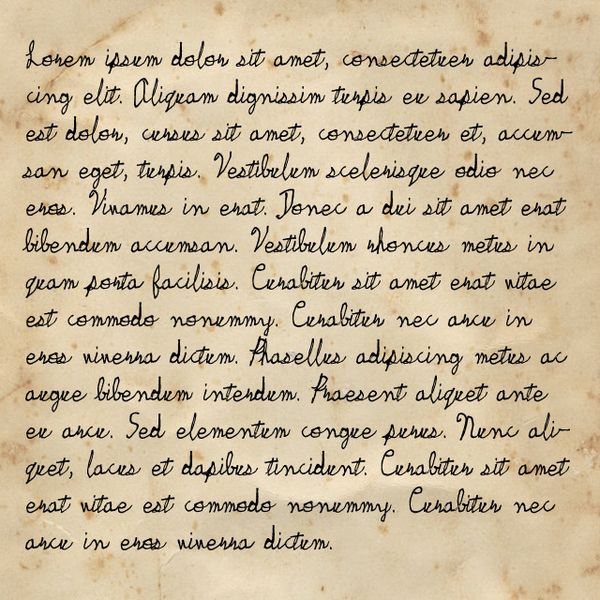 Lorem ipsum dolor sit amet, consectetuer adipis-
cing elit. Aliquam dignissim turpis eu sapien. Sed
est dolor, cursus sit amet, consectetuer et, accum-
san eget, turpis. Vestibulum scelerisque odio nec
eros. Vivamus in erat. Donec a dui sit amet erat
bibendum accumsan. Vestibulum rhoncus metus in
quam porta facilisis. Curabitur sit amet erat vitae
est commodo nonummy. Curabitur nec arcu in
eros viverra dictum. Phasellus adipiscing metus ac
augue bibendum interdum. Praesent aliquet ante
eu arcu. Sed elementum congue purus. Nunc ali-
quet, lacus et dapibus tincidunt. Curabitur sit amet
erat vitae est commodo nonummy. Curabitur nec
arcu in eros viverra dictum.